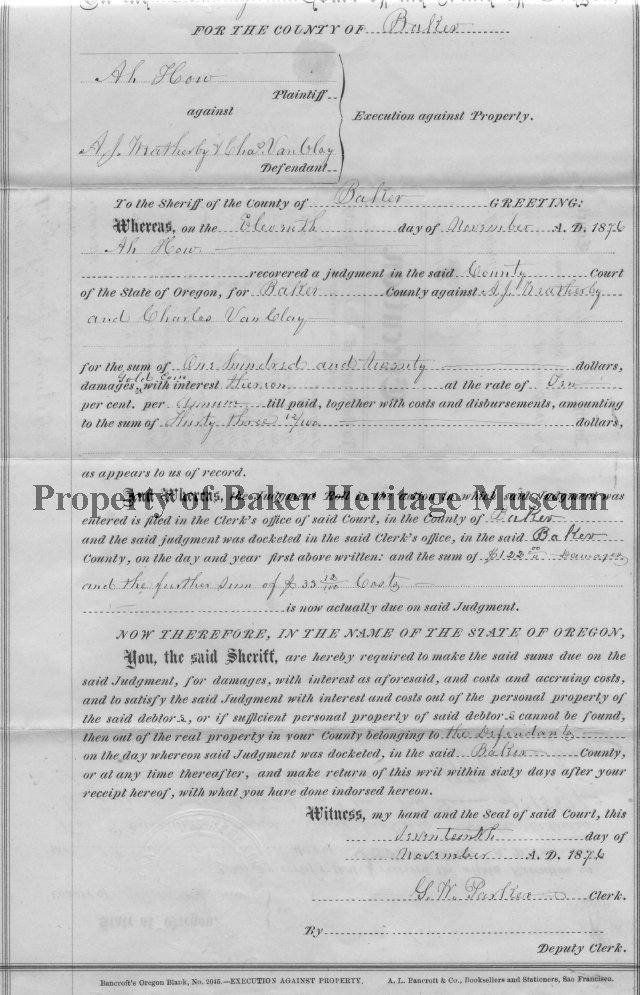 FOR THE COUNTY OF Baker
Ah How
Plaintiff
against
Execution against Property.
A. J. Weatherby & Chas. Van Clay
Defendant
To the Sheriff of the County of Baker GREETING:
Whereas, on the Eleventh day of November A. D. 1876
Ah How
recovered a judgment in the said County Court
of the State of Oregon, for Baker County against A J Weatherby
and Charles Van Clay
for the sum of One hundred and twenty dollars,
Gold Coin
damages, with interest thereon at the rate of Ten
per cent. per Annum till paid, together with costs and disbursements, amounting
to the sum of Thirty three 12/100 dollars,
as appears to us of record.
Property of Baker Heritage Museum
And Whereas, the Judgment Roll in the action in which said Judgment was
entered is filed in the Clerk's office of said Court, in the County of Baker
and the said judgment was docketed in the said Clerk's office, in the said Baker
County, on the day and year first above written: and the sum of $122 00/ Damages
and the further sum of $33 12/100 Costs
is now actually due on said Judgment.
NOW THEREFORE, IN THE NAME OF THE STATE OF OREGON,
You, the said Sheriff, are hereby required to make the said sums due on the
said Judgment, for damages, with interest as aforesaid, and costs and accruing costs,
and to satisfy the said Judgment with interest and costs out of the personal property of
the said debtors, or if sufficient personal property of said debtors cannot be found,
then out of the real property in your County belonging to the Defendants
on the day whereon said Judgment was docketed, in the said Baker County,
or at any time thereafter, and make return of this writ within sixty days after your
receipt hereof, with what you have done indorsed hereon.
Witness, my hand and the Seal of said Court, this
Seventeenth day of
November A. D. 1876
G. W. Parker Clerk.
By
Deputy Clerk.
Bancroft's Oregon Blank, No. 2045.—EXECUTION AGAINST PROPERTY. A. L. Bancroft & Co., Booksellers and Stationers, San Francisco.